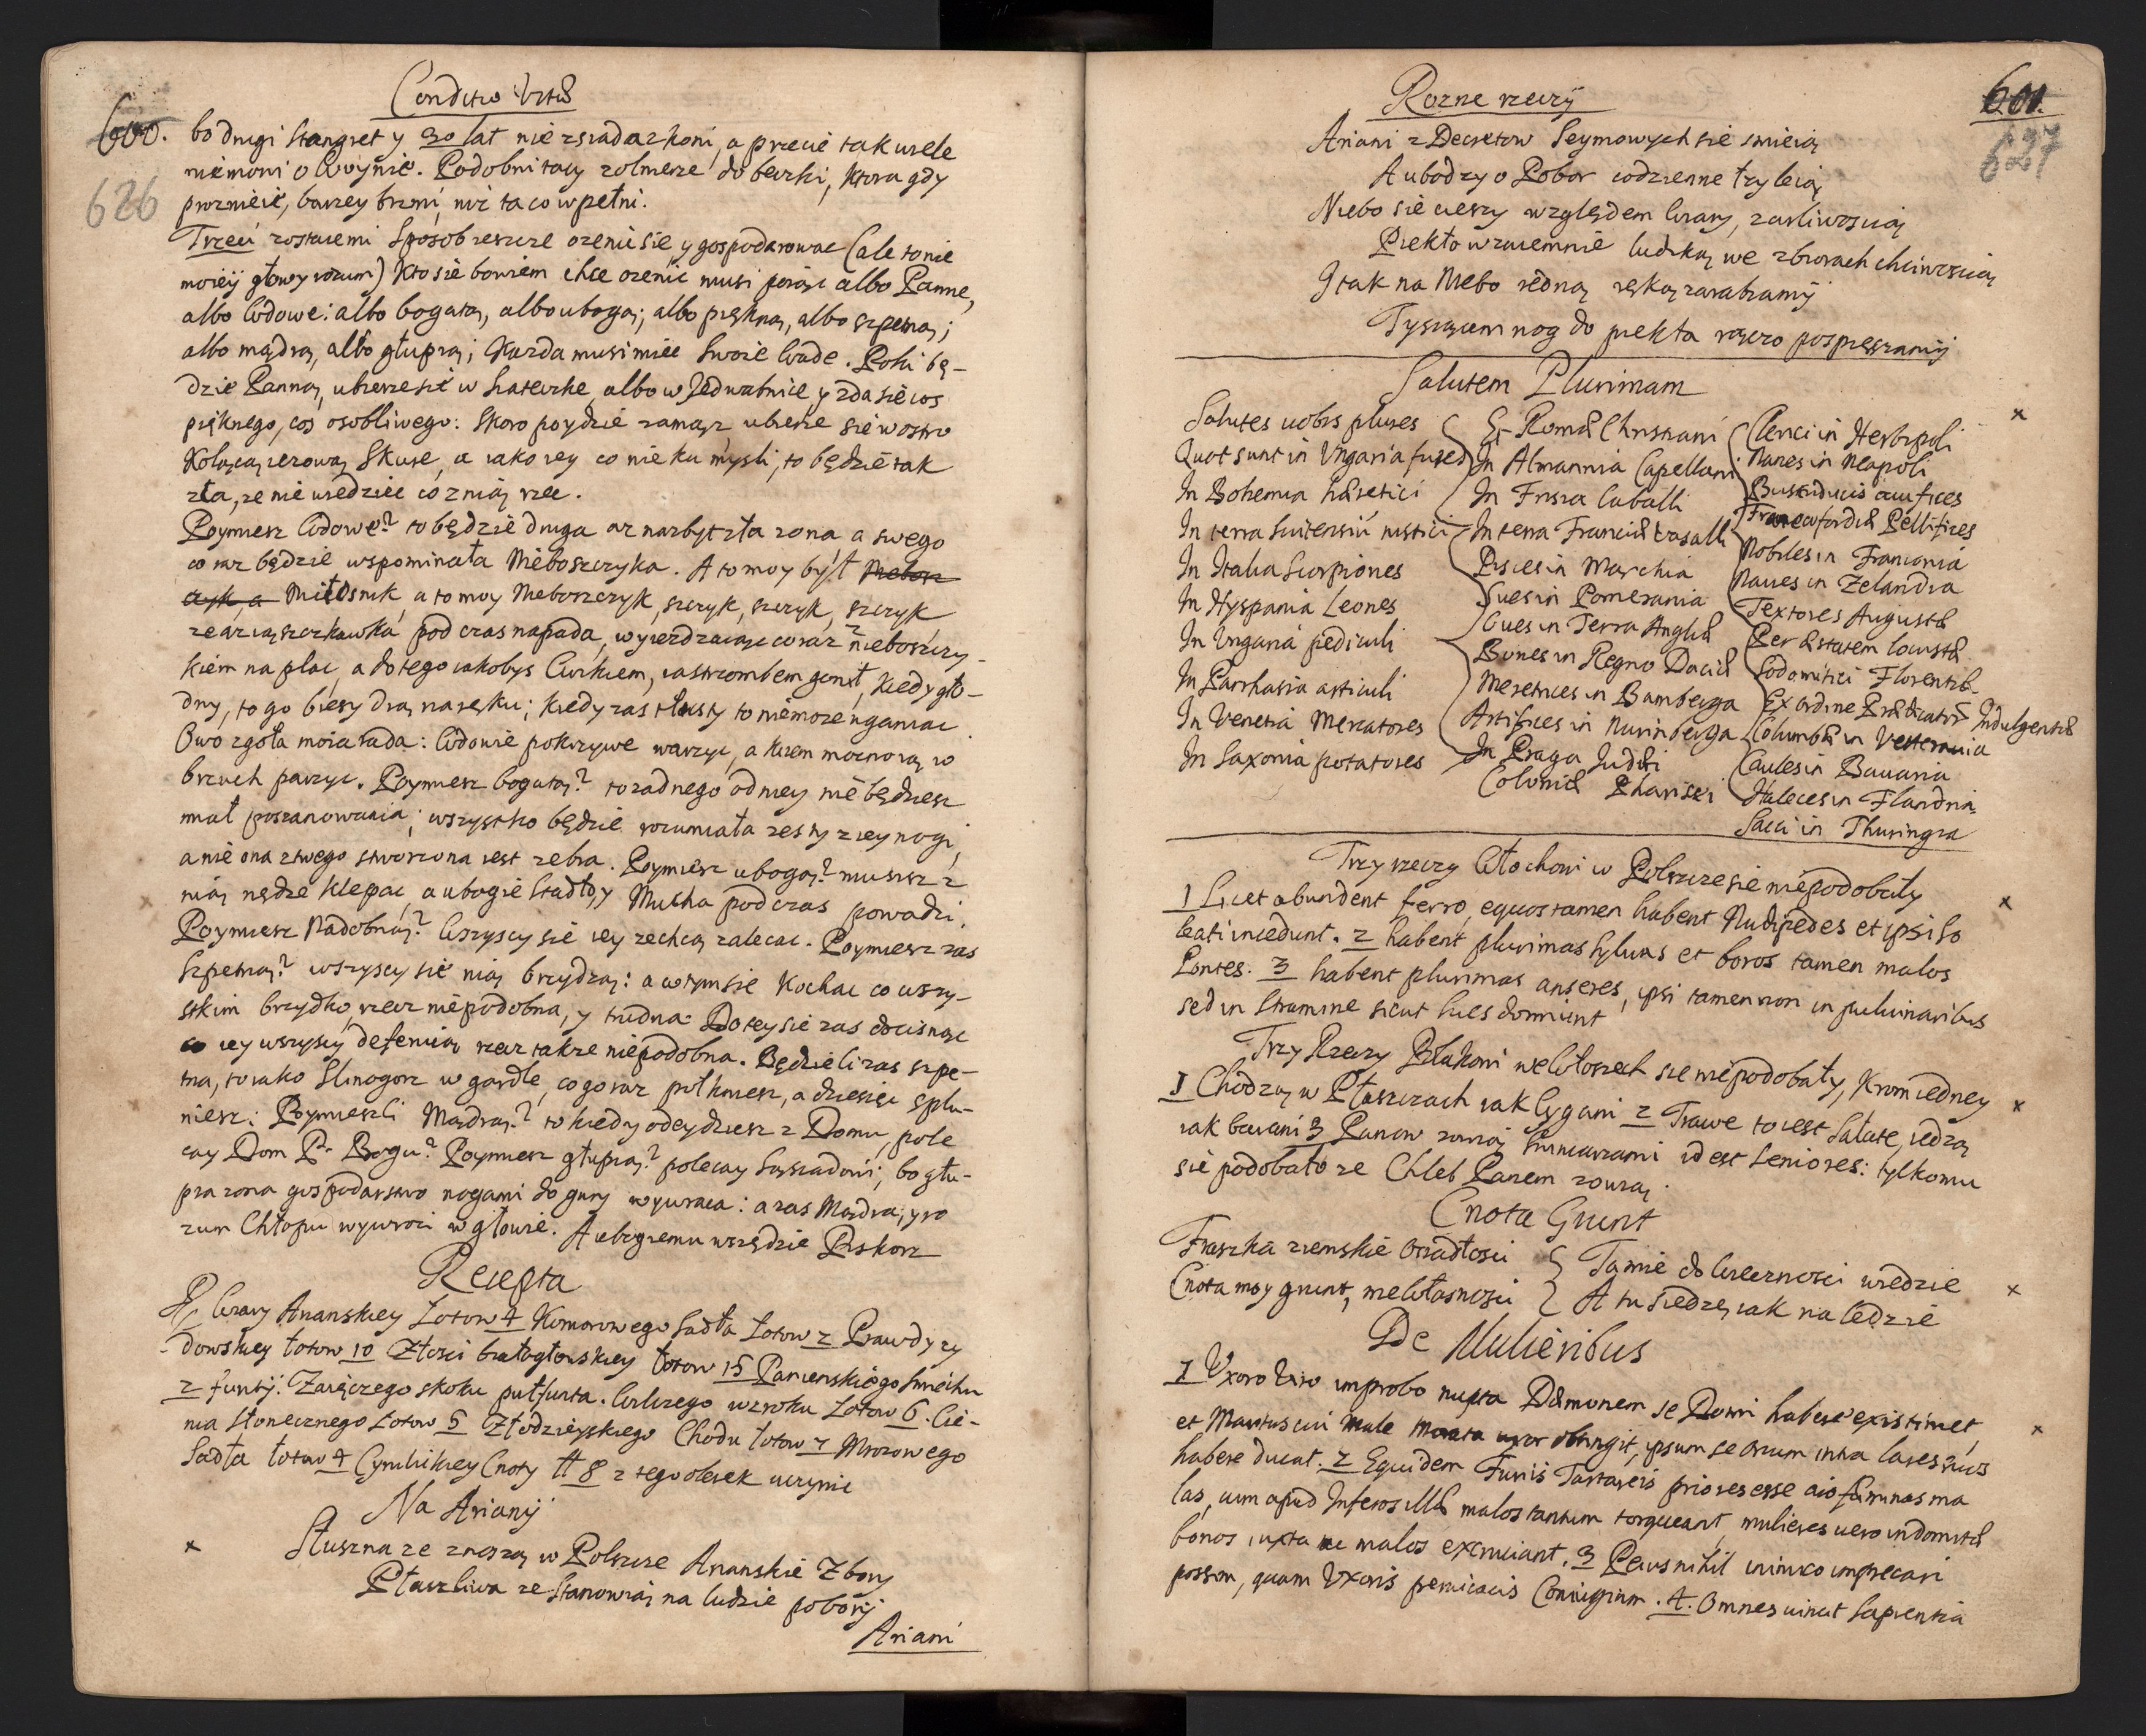 Conditio Vitæ
600.
626
bo drugi Stangret y 30 lat nie zsiada z koni, a przecie tak wiele
nie mowi o Woynie. Podobni tacy zolnierze do beczki, ktora gdy
proznieie, barzey brzmi, niz ta co w pełni.
Trzeci zostaiemi Sposob ieszcze ozenić sie y gospodarowac (ale to nie
moieÿ głowy rozum) Kto sie bowiem chce ozenic musi poiąc albo Panne,
albo Wdowe: albo bogatą, albo ubogą; albo piękną, albo szpetną;
albo mądrą, albo głupią; Kazda musi miec Swoie Wade. Poki bę-
dzie Panną, ubierze sie w Sateczke, albo w Jedwabnice, y zda sie cos
pięknego, cos osobliwego: Skoro poydzie zamąz ubierze sie w ostro
Kolącą iezową Skure, a iako iey co nie ku mysli, to będzie tak
zła, ze nie wiedziec co z nią rzec.
Poymiesz Wdowę? to będzie druga az nazbyt zła zona, a swego
co raz będzie wspominała Nieboszczyka. A to moy był Niebosz
czyk, a Miłosnik, a to moy Nieboszczyk, szczyk, szczyk, szczyk
ze az ią szczkawka podczas napada, wyiezdzaiąc coraz z nieboszczy-
kiem na plac, a do tego iakobys Curkiem, iastrzombem gonił, Kiedy gło-
dny, to go biesy drą na ręku; kiedy zas tłusty to niemoze uganiac
Owo zgoła moia rada: Wdowie pokrzywe warzyc, a kiem mocno ią w
brzuch parzyc. Poymiesz bogatą? to zadnego od niey nie będziesz
miał poszanowania; wszystko będzie rozumiała zes ty z iey nogi,
a nie ona z twego stworzona iest zebra. Poymiesz ubogą? musisz z
nią nędze klepac, a ubogie Stadło, y Mucha podczas powadzi.
Poymiesz Nadobną? Wszyscy sie iey zechcą zalecac. Poymiesz zas
Szpetną? wszyscy sie nią brzydzą: a w tym sie Kochac co wszy-
stkim brzydko, rzecz niepodobna, y trudna. Do tey sie zas docisnąc
co iey wszyscy defenduią rzecz takze niepodobna. Będzieli zas szpe-
tna, to iako Slinogorz w gardle, co go raz połkniesz, a dziesięc splu-
niesz: Poymieszli Mądrą? to kiedy odeydziesz z Domu, pole
cay Dom P. Bogu? Poymiesz głupią? polecay Sąsiadowi; bo głu-
pia zona gospodarstwo nogami do gury wywraca: a zas Mądra, y ro
zum Chłopu wywroci w głowie. A ubogiemu wszędzie Piskorz
Recepta
Rp. Wiary Arianskiey Łotow 4 Komorowego Sadła Łotow 2 Prawdy zy
dowskiey łotow 10 Złosci białogłowskiey łotow 15 Panienskiego Smiechu
2 funtÿ. Zaięczego skoku puł funta. Wilczego wzroku Łotow 6. Cie-
nia Słonecznego Łotow 5 Złodzieyskiego Chodu łotow 7 Mrozowego
Sadła łotow 4 Cymlikiey Cnoty tt 8 z tego oleiek uczynic
Na Arianÿ
× Słuszna ze znoszą w Polszcze Arianskie Zbory
Płaczliwa ze Stanowią na ludzie poborÿ
Ariani
Rozne rzeczÿ
601.
627
Ariani z Decretow Seymowych sie smieią
A ubodzy o Pobor codzienne łzy leią
Niebo sie cieszy względem Wiary, zarliwoscią
Piekło wzaiemnie ludzką we zbiorach chciwoscią
I tak na Niebo iedną ręką zarabiamÿ
Tysiącem nog do piekła rączo pospieszamÿ
Salutem Plurimam
×
Salutes uobis plures
Quot sunt in Vngaria fures
In Bohemia hæretici
In terra Suitensiū rustici
In Italia Scorpiones
In Hyspania Leones
In Vngaria pediculi
In Parrhasia articuli
In Venetia Mercatores
In Saxonia potatores
Et Romæ Christiani
In Almannia Capellani
In Frisia Caballi
In terra Franciæ Vasalli
Pisces in Marchia
Sues in Pomerania
Oues in Terra Angliæ
Boues in Regno Daciæ
Meretrices in Bamberga
Artifices in Nurinberga
In Praga Judæi
Coloniæ Pharisei
Clerici in Herbipoli
Nanes in Neapoli
Buscoducis aurifices
Francofordiæ Pellifices
Nobiles in Franconia
Naues in Zelandia
Textores Augustæ
Per æstatem locustæ
Sodomitici Florentiæ
Ex ordine Prædicatorū Indulgentiæ
Columbæ in Vesterauia
Caules in Bauaria
Haleces in Flandria
Sacci in Thuringia
Trzy rzeczy Włochowi w Polszcze sie niepodobały
1 Licet abundent ferro, equos tamen habent Nudipedes et ipsi so ×
leati incedunt. 2 habent plurimas Syluas et boros tamen malos
Pontes. 3 habent plurimas anseres, ipsi tamen non in puluinaribus
sed in Stramine sicut Sues dormiunt
Trzy Rzeczy Polakowi we Włoszech sie niepodobały, Krom iedney
1 Chodzą w Płaszczach iak Cygani 2 Trawe to iest Sałate, iedzą ×
iak barani 3 Panow zowią Sminiarzami id est Seniores: tylko mu
sie podobało ze Chleb Panem zowią.
Cnota Grunt
Fraszka ziemskie Osiadłosci
Cnota moy grunt, me Własnosci
Ta mie do Wiecznosci wiedzie ×
A tu siedzę, iak na ledzie
De Mulieribus
1 Vxor Viro improbo nupta Dæmonem se Domi habere existimet, ×
et Maritus cui male Morata uxor obtingit, ipsum se Orcum intra lares suos
habere ducat. 2 Equidem Furiis Tartareis priores esse aio fæminas ma
las, cum apud Inferos illæ malos tantum torqueant, mulieres uero indomitæ
bonos iuxta ac malos excruciant. 3 Peius nihil inimico imprecari
possem, quam Vxoris peruicacis Coniugium. 4. Omnes uincit Sapientia